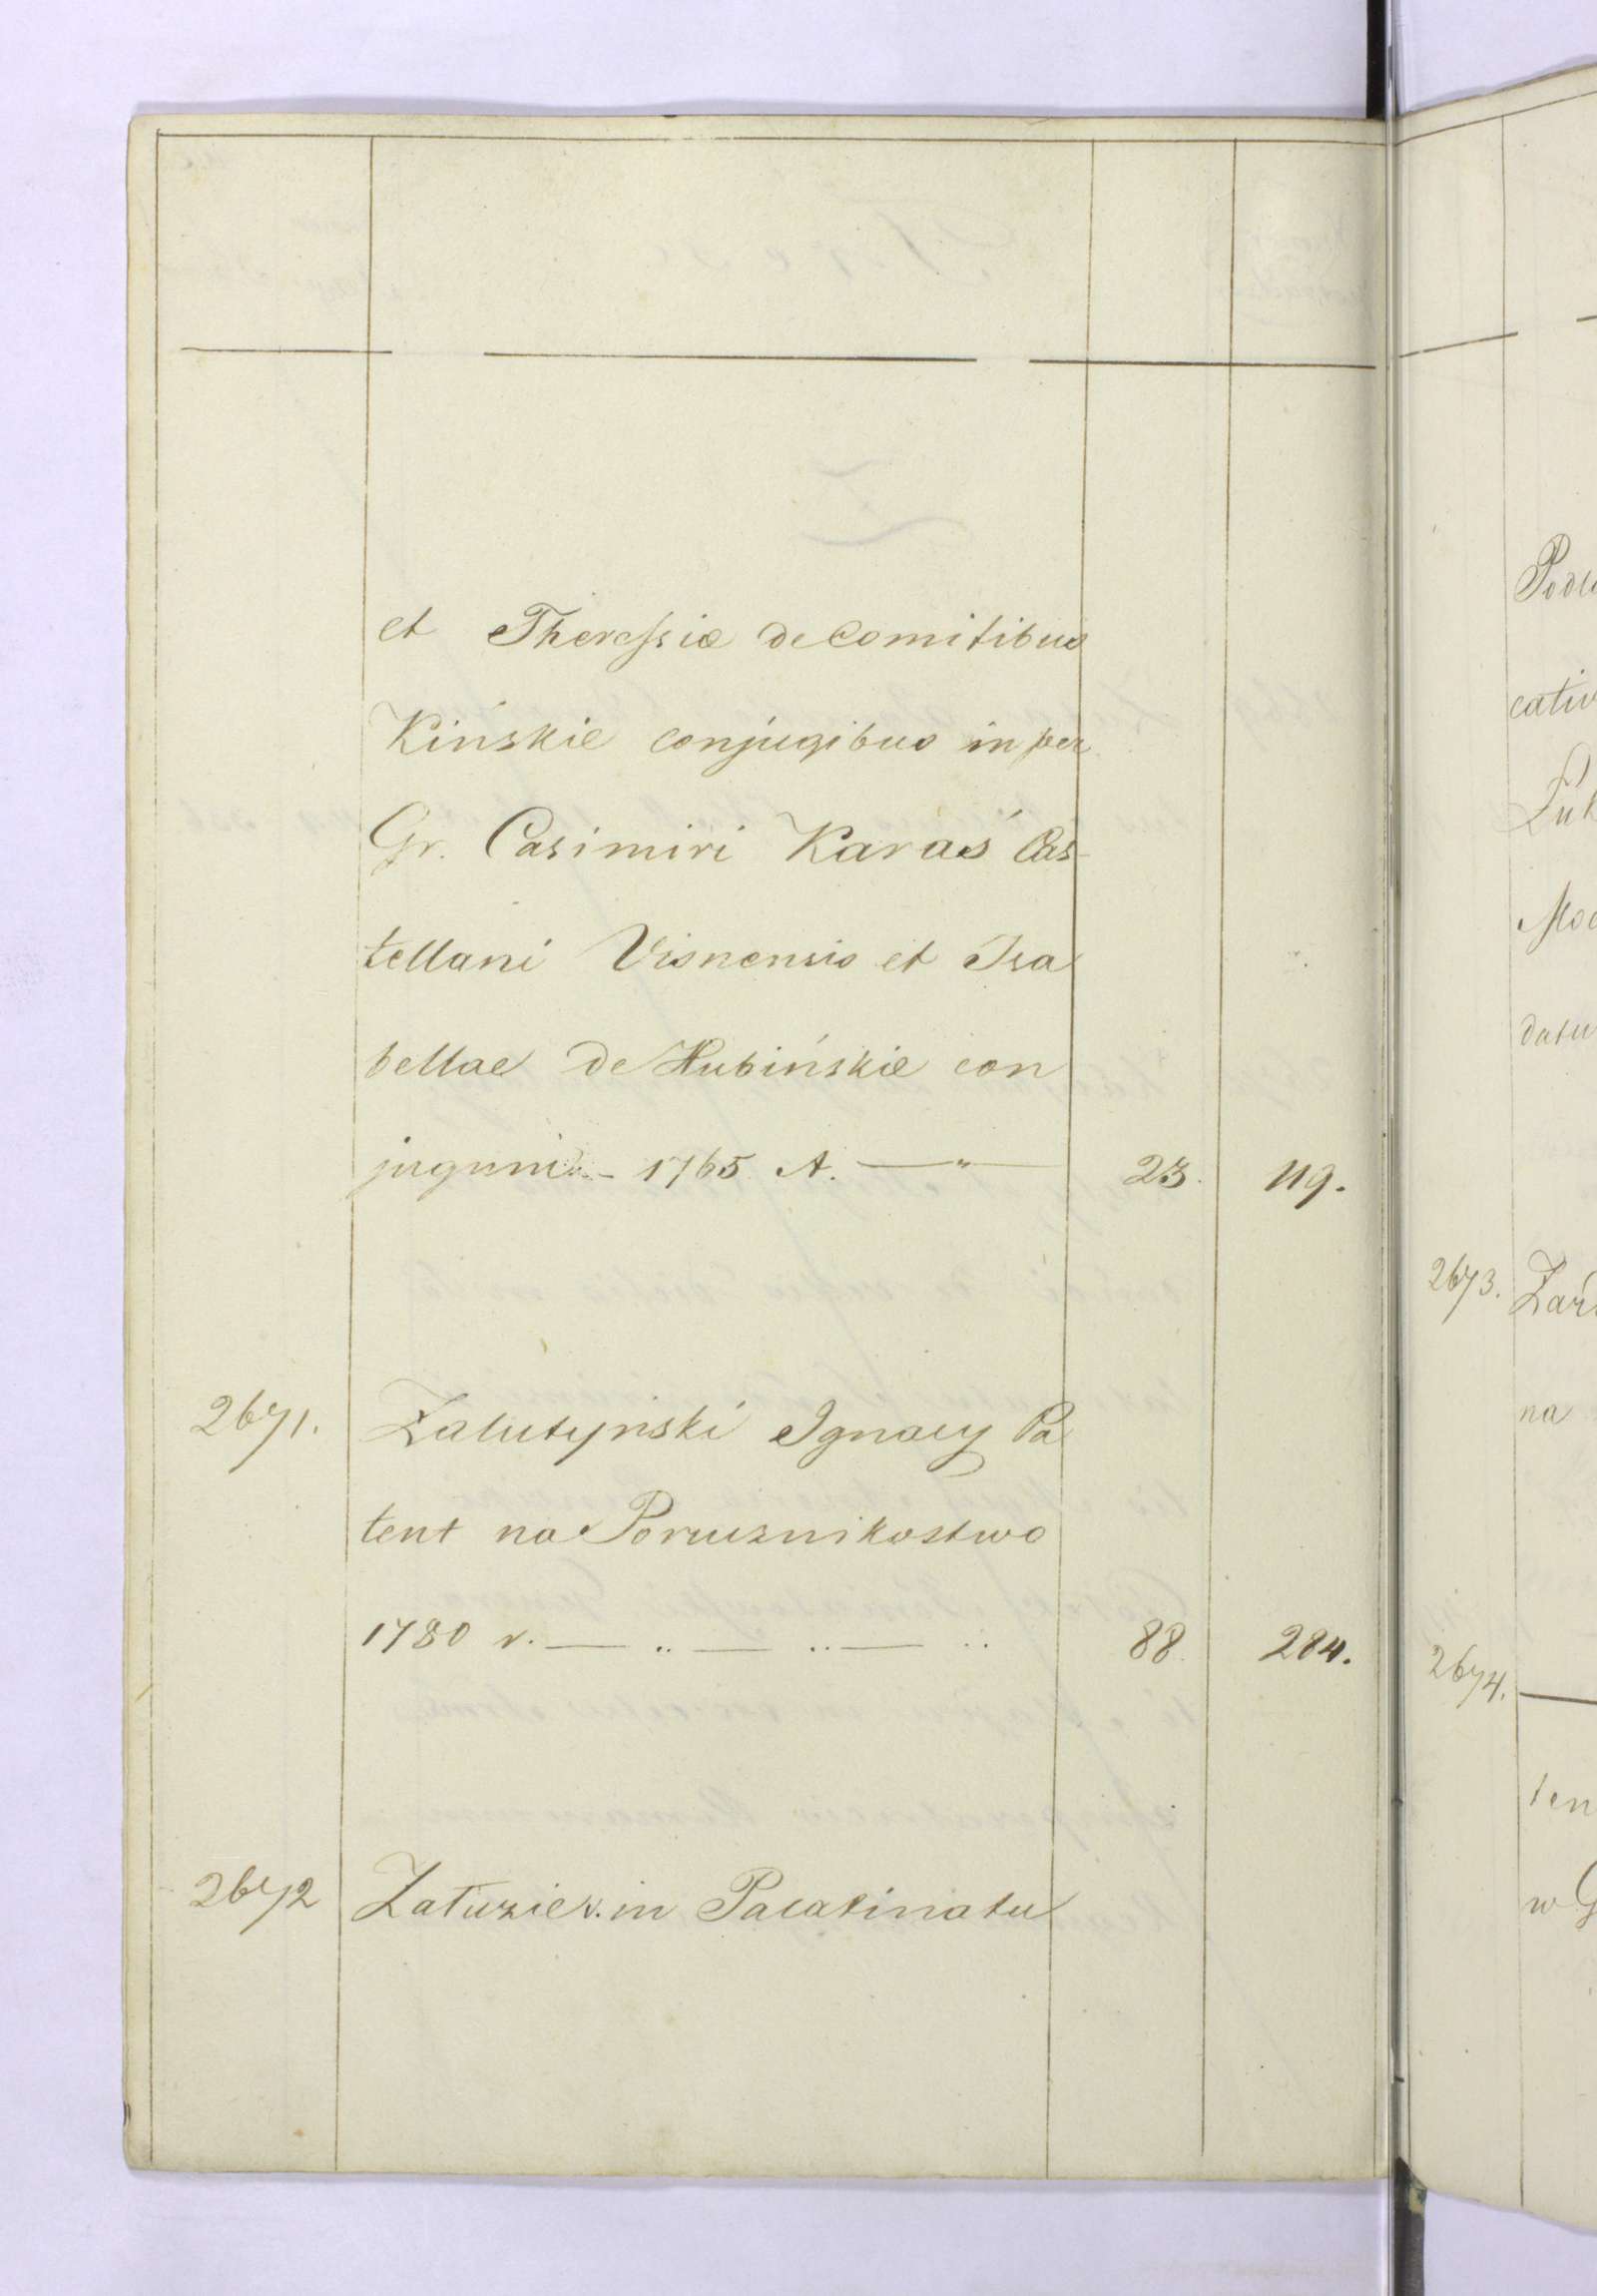 et Theressiæ de Comitibus
Kińskie conjugibus in per
Gr. Casimiri Karaś Cas-
tellani Visnensis et Isa
bellae de Hubińskie con
jugum - 1765 A. — " — 23. 119.
2671. Zalutyński Ignacy Pa
tent na Porucznikostwo
1780 r. — .. — .. — .. 88. 284.
2672 Załuzie v. in Palatinatu
cativ
datu
2673.
na
2674.
ten
w G